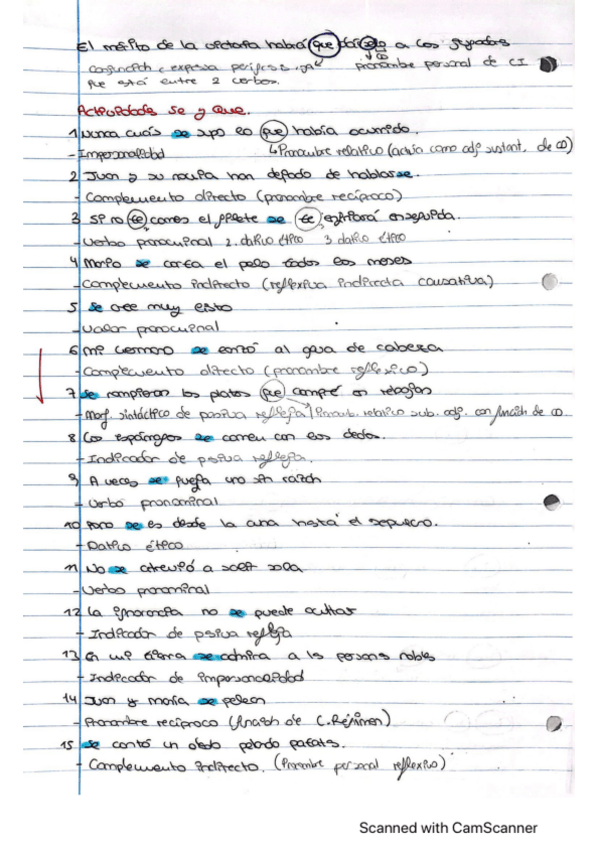 El mérito de la victoria habrá que dárselo a los jugadores
conjunción, expresa perífrasis, ya pronombre personal de CI
que está entre 2 verbos.
Actividades se y que.
1 Nunca se supo lo que había ocurrido.
- Impersonalidad ↳ Pronombre relativo (actúa como adj sustant. de CD)
2 Juan y su novia han dejado de hablarse.
- Complemento directo (pronombre recíproco)
3 Si no te comes el filete se te enfriará enseguida.
- Verbo pronominal 2. dativo ético 3. dativo ético
4 Mario se corta el pelo todos los meses
- Complemento indirecto (reflexiva indirecta causativa)
5 Se cree muy listo
- Valor pronominal
6 Mi hermano se lanzó al agua de cabeza
- Complemento directo (pronombre reflexivo)
7 Se rompieron los platos que compré en rebajas
- Morf. sintáctico de pasiva refleja / Pronomb. relativo sub. adj. con función de CD.
8 Los espárragos se comen con los dedos.
- Indicador de pasiva refleja.
9 A veces se queja uno sin razón
- Verbo pronominal
10 se es desde la cuna hasta el sepulcro.
- Dativo ético
11 No se atrevió a salir sola
- Verbo pronominal
12 La ignorancia no se puede ocultar
- Indicador de pasiva refleja
13 En mi tierra se admira a las personas nobles
- Indicador de impersonalidad
14 Juan y María se pelean
- Pronombre recíproco (función de C. Régimen)
15 Se cortó un dedo pelando patatas.
- Complemento indirecto. (Pronombre personal reflexivo)
Scanned with CamScanner